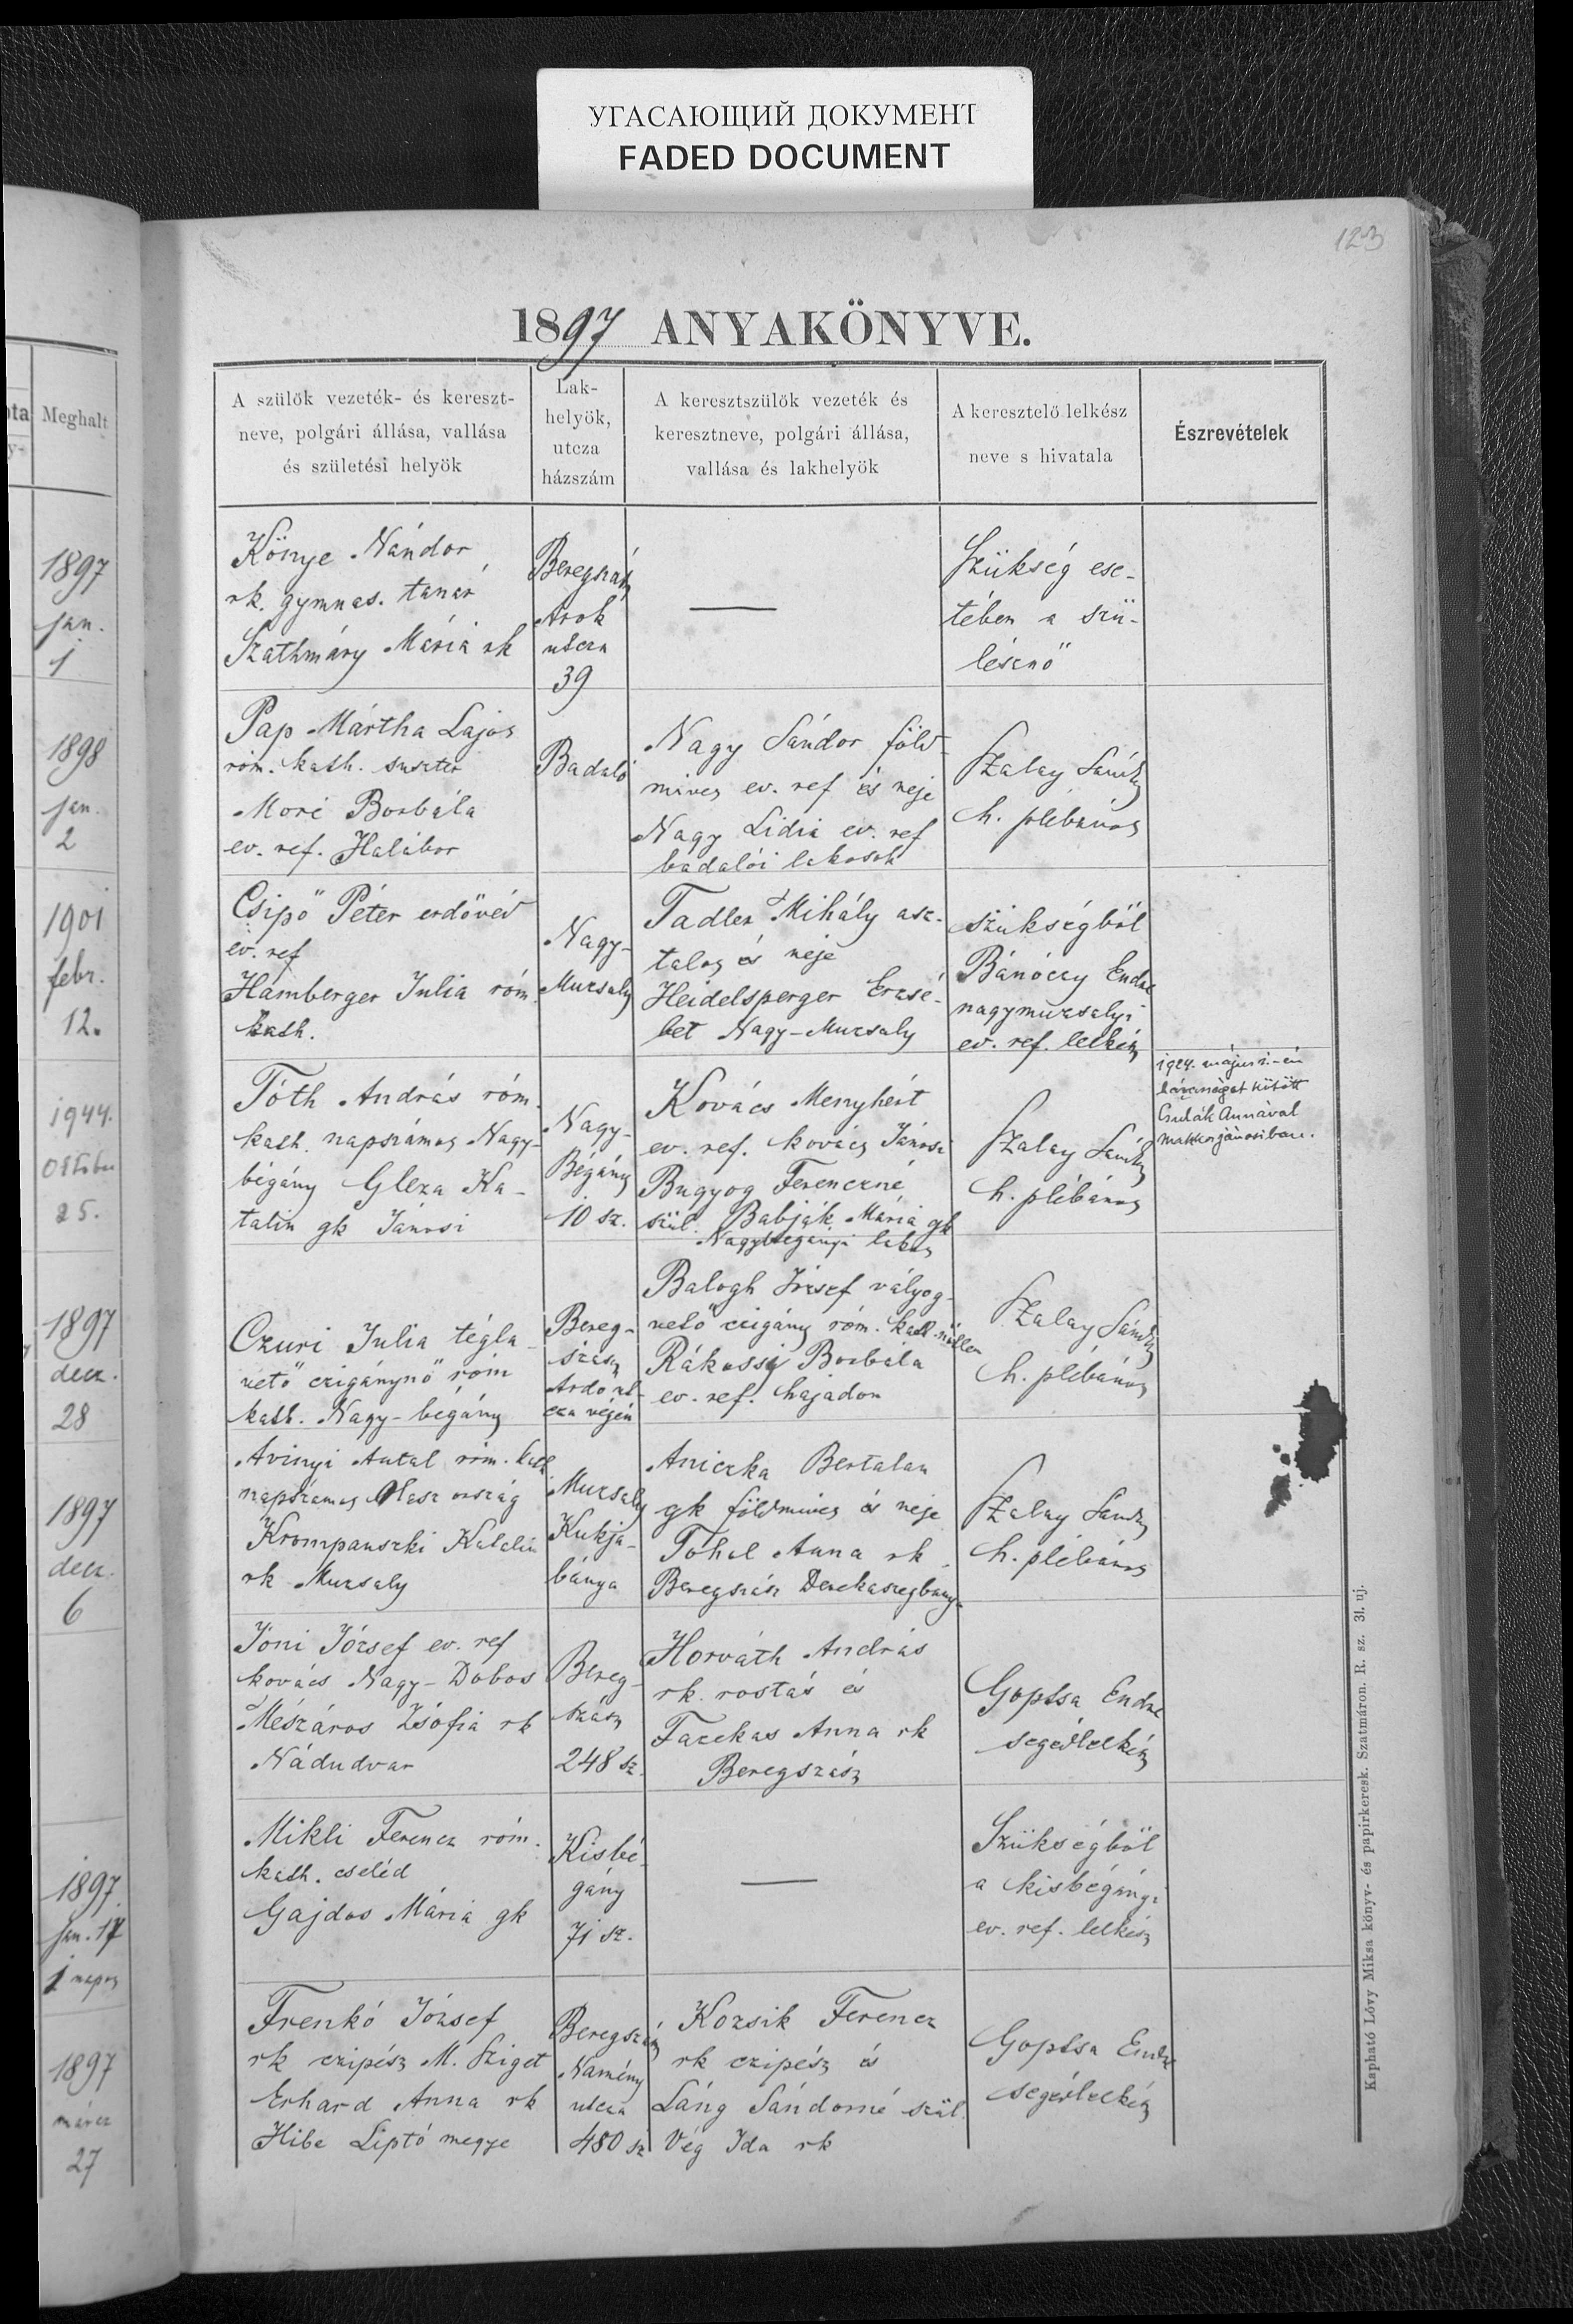 УГАСАЮЩИЙ ДОКУМЕНТ
FADED DOCUMENT
123
1897 ANYAKÖNYVE.
ota
Meghalt
y-
1897
jan.
1
1898
jan.
2
1901
febr.
12.
1944.
október
25.
1897
decz.
28
1897
decz.
6
1897
jan. 17
1 napos
1897
márcz
27
A szülök vezeték- és kereszt-
neve, polgári állása, vallása
és születési helyök
Lak-
helyök,
utcza
házszám
A keresztszülök vezeték és
keresztneve, polgári állása,
vallása és lakhelyök
A keresztelö lelkész
neve s hivatala
Észrevételek
Könye Nándor
rk. gymnas. tanár
Szathmáry Mária rk
Beregszász
Árok
utcza
39
Szükség ese-
tében a szü-
lésznő
Pap Mártha Lajos
róm. kath. suszter
Moré Borbála
ev. ref. Halábor
Badaló
Nagy Sándor föld-
mives ev. ref és neje
Nagy Lidia ev. ref
badalói lakosok
Szalay Sándor
h. plébános
Csipő Péter erdővéd
ev. ref
Hamberger Julia róm.
kath.
Nagy-
Muzsaly
Tadler Mihály asz-
talos és neje
Heidelsperger Erzsé-
bet Nagy-Muzsaly
szükségből
Bánóczy Endre
nagymuzsalyi
ev. ref. lelkész
Tóth András róm.
kath. napszámos Nagy-
bégány Gleza Ka-
talin gk Jánosi
Nagy-
Bégány
10 sz.
Kovács Menyhért
ev. ref. kovács Jánosi
Bugyog Ferenczné
szül. Babják Mária gk
Nagybegányi lakos
Szalay Sándor
h. plébános
1924. május -én
házasságot kötött
Csulák Annával
Makkosjánosiban.
Czuri Julia tégla-
vető czigánynő róm
kath. Nagy-bégány
Bereg-
szász
Ardó ut-
cza végén
Balogh József vályog-
vető czigány róm. kath. nőtlen
Rákossy Borbála
ev. ref. hajadon
Szalay Sándor
h. plébános
Avinyi Antal róm. kath
napszámos Olasz ország
Krompanszki Katalin
rk Muzsaly
Muzsaly
Kukja-
bánya
Aniczka Bertalan
gk földmives és neje
Tohol Anna rk
Beregszász Derekaszegbánya
Szalay Sándor
h. plébános
Jóni József ev. ref
kovács Nagy-Dobos
Mészáros Zsófia rk
Nádudvar
Bereg-
szász
248 sz.
Horváth András
rk. rostás és
Fazekas Anna rk
Beregszász
Goptsa Endre
segédlelkész
Mikli Ferencz róm.
kath. cseléd
Gajdos Mária gk
Kisbé-
gány
71 sz.
Szükségből
a kisbégányi
ev. ref. lelkész
Frenkó József
rk czipész M. Sziget
Erhard Anna rk
Hibe Liptó megye
Beregszász
Namény
utcza
480 sz
Kozsik Ferencz
rk czipész és
Láng Sándorné szül.
Vég Ida rk
Goptsa Endre
segédlelkész
Kapható Lövy Miksa könyv- és papirkeresk. Szatmáron. R. sz. 31. uj.